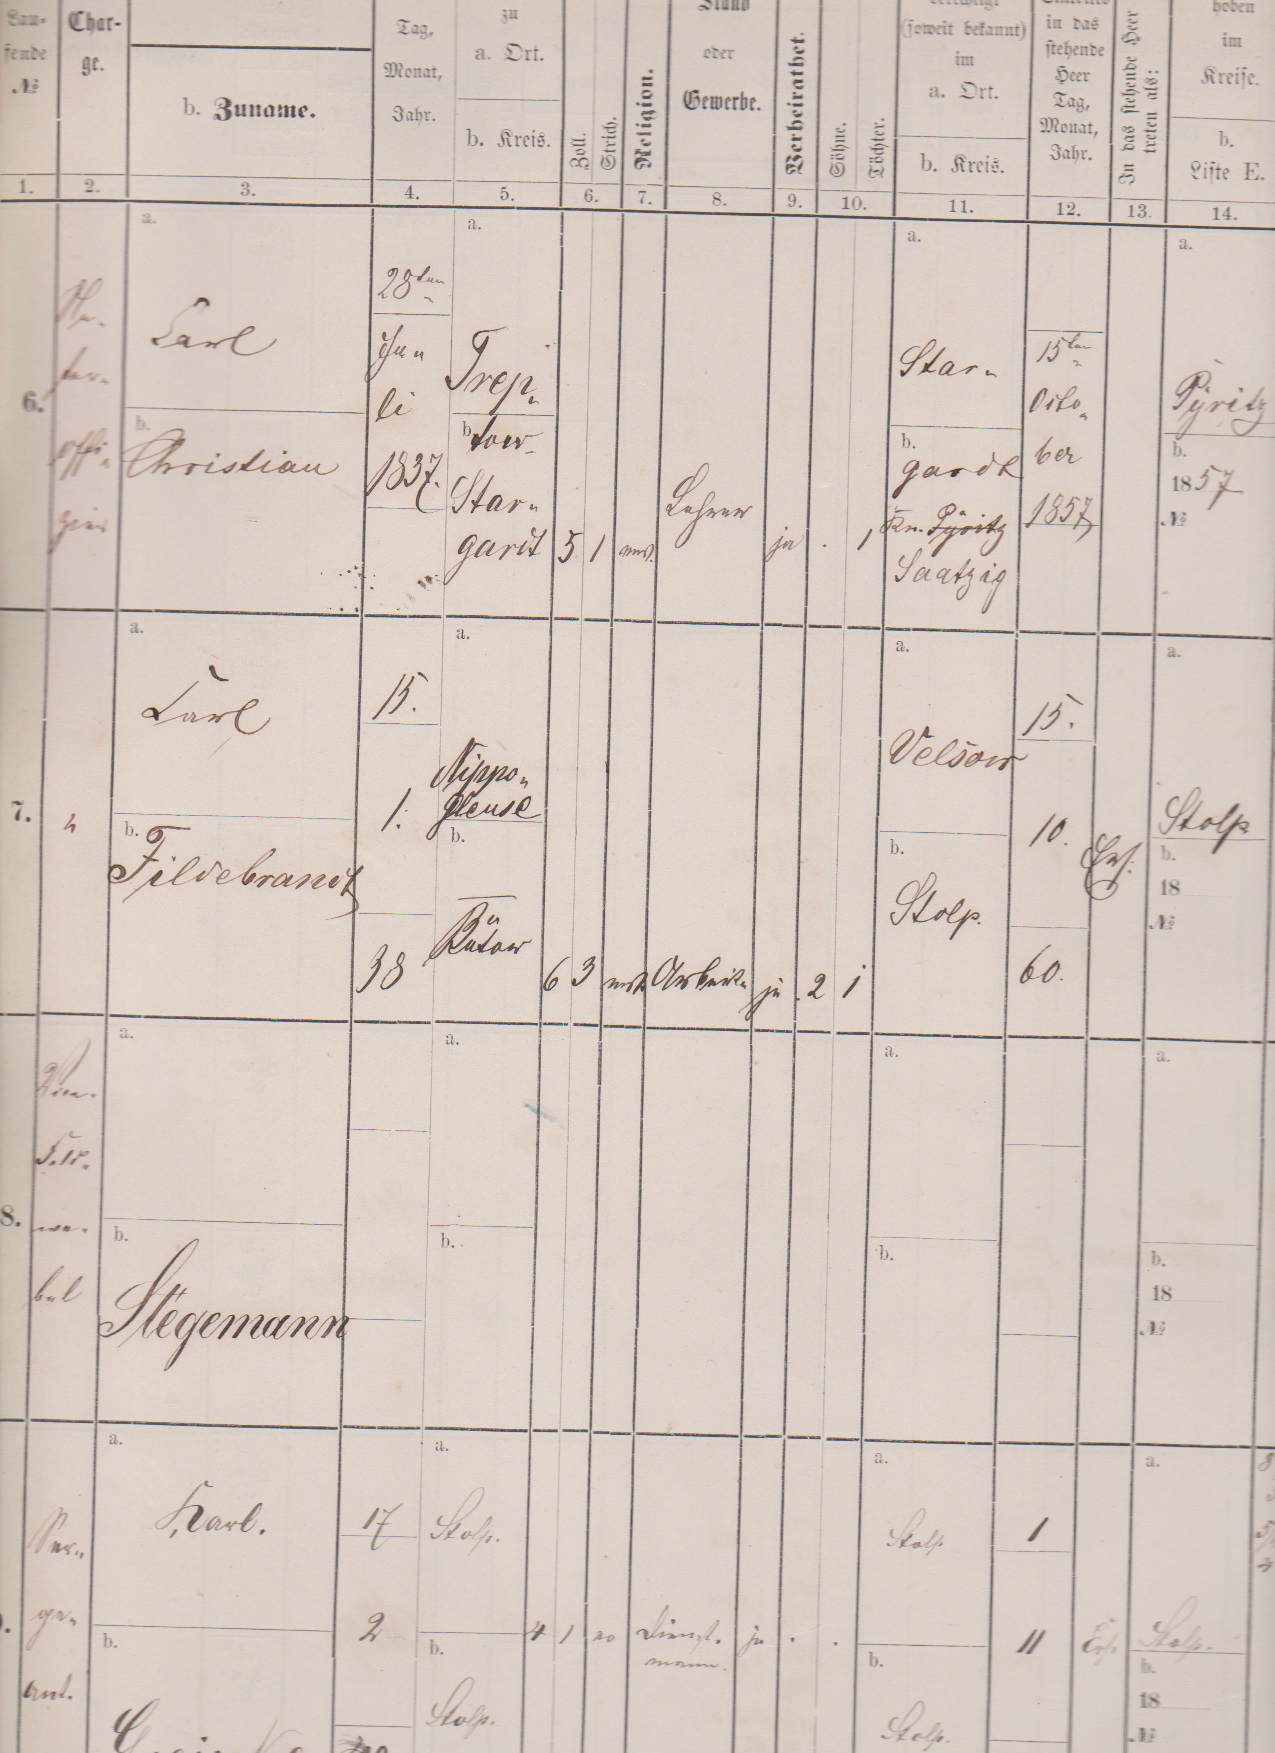 Lau-
fende
№
Char-
ge.
b. Zuname.
Tag,
Monat,
Jahr.
zu
a. Ort.
b. Kreis.
Zoll.
Strich.
Religion.
Stand
oder
Gewerbe.
Verheirathet.
Söhne.
Töchter.
berechtigt
(soweit bekannt)
im
a. Ort.
b. Kreis.
in das
stehende
Heer
Tag,
Monat,
Jahr.
In das stehende Heer
treten als:
hoben
im
Kreise.
b.
Liste E.
1. 2. 3. 4. 5. 6. 7. 8. 9. 10. 11. 12. 13. 14.
6.
Un-
ter-
offi-
zier
a.
Carl
b.
Christian
28ten
Ju-
li
1837.
a.
Trep-
b. tow
Star-
gardt
5 1
Lehrer
ja
1
a.
Star-
b.
gardt
Kr. Pyritz
Saatzig
15ten
Octo-
ber
1857
a.
Pyritz
b.
1857
№
7.
"
a.
Carl
b.
Fildebrandt
15.
1.
38
a.
Nippo-
gleuse
b.
Bütow
6 3
Arbeit.
ja
2 1
a.
Velsow
b.
Stolp.
15.
10.
60.
Ers.
a.
Stolp.
b.
18
№
8.
Vice-
Feld-
we-
bel
a.
b.
Stegemann
a.
b.
a.
b.
a.
b.
18
№
Ser-
ge-
ant.
a.
Karl.
b.
17
2
a.
Stolp.
b.
Stolp.
4 1
Dienst-
mann.
ja
a.
Stolp
b.
Stolp.
1
11
Ers.
a.
Stolp.
b.
18
№